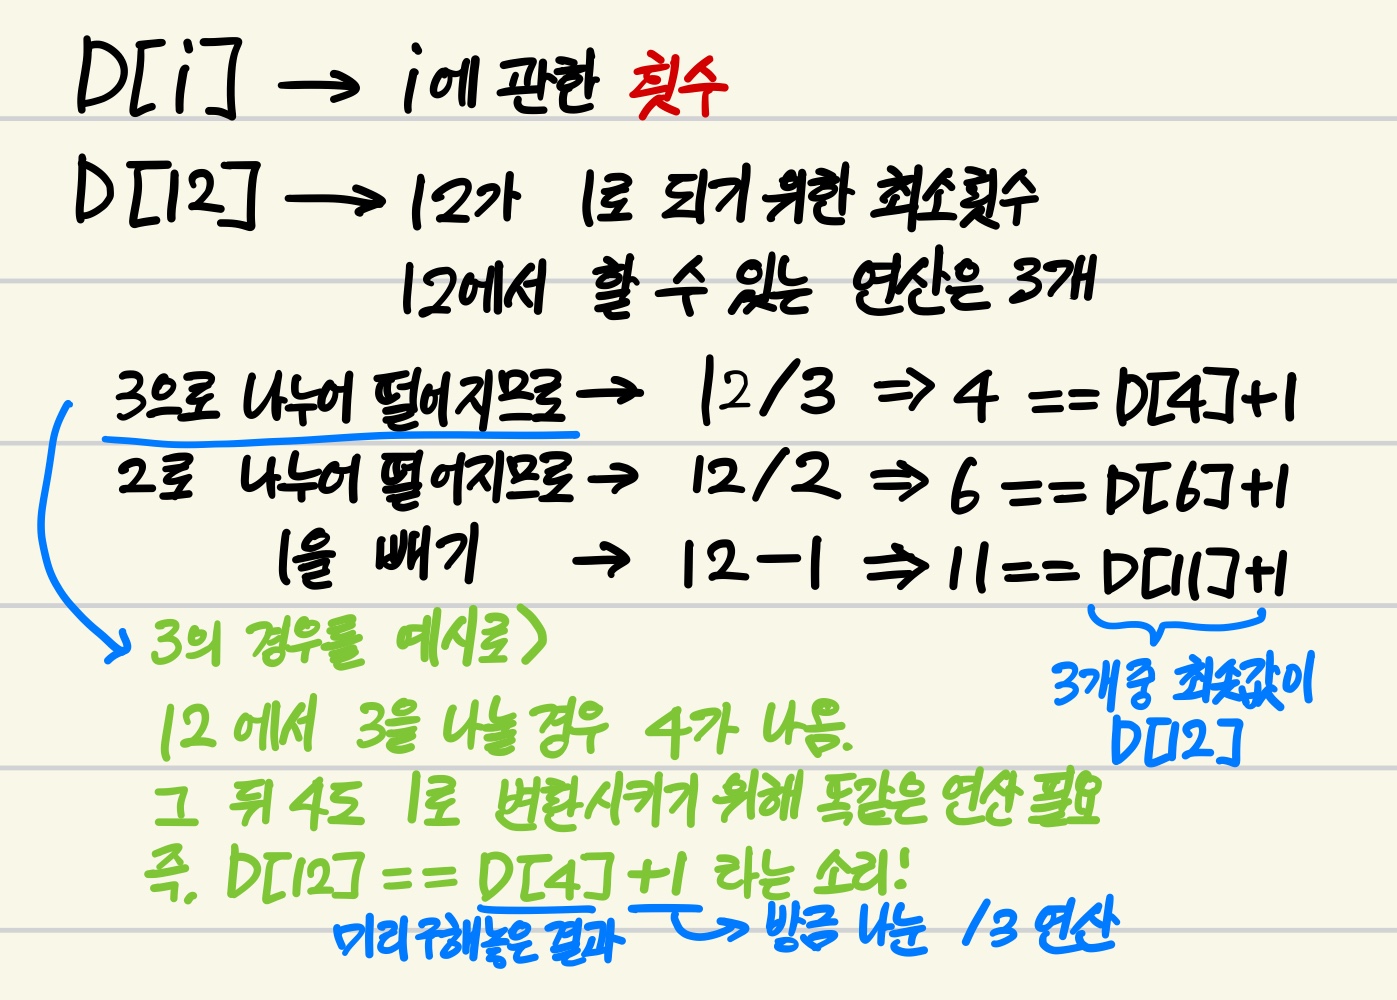 D[i] → i에 관한 횟수
D[12] → 12가 1로 되기 위한 최소횟수
12에서 할 수 있는 연산은 3개
3으로 나누어 떨어지므로 → 12/3 ⇒ 4 == D[4]+1
2로 나누어 떨어지므로 → 12/2 ⇒ 6 == D[6]+1
1을 빼기 → 12-1 ⇒ 11 == D[11]+1
3개중 최솟값이
D[12]
3의 경우를 예시로>
12에서 3을 나눌 경우 4가 나옴.
그 뒤 4도 1로 변환시키기 위해 똑같은 연산 필요
즉, D[12] == D[4]+1 라는 소리!
미리 구해놓은 결과 → 방금 나눈 /3 연산